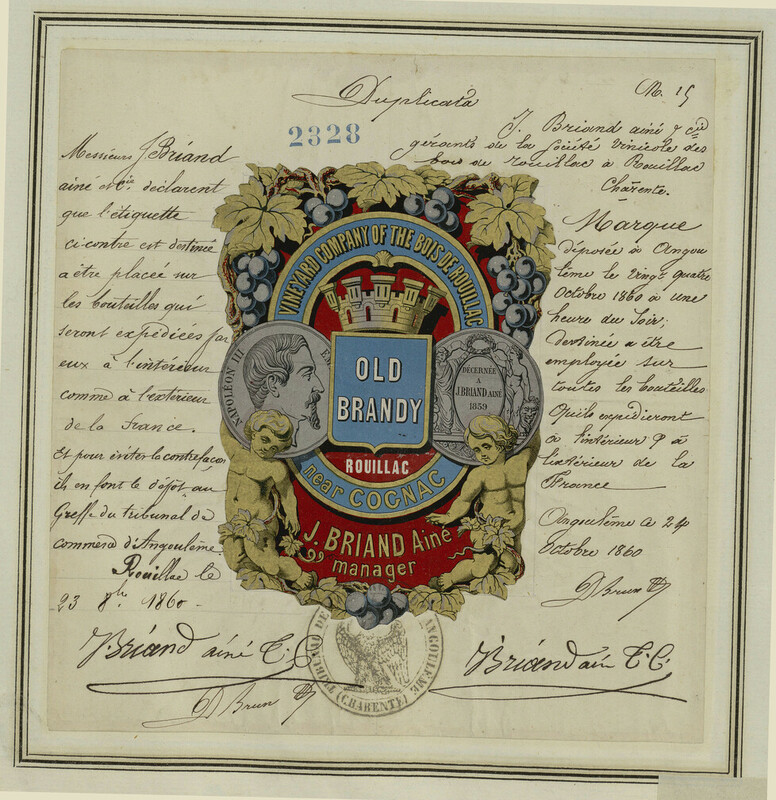 Duplicata
2328
Messieurs J Briand
ainé et Cie déclarent
que l'étiquette
ci contre est destinée
a être placée sur
les bouteilles qui
seront expédiées par
eux à l'intérieur
comme à l'extérieur
de la France.
Et pour eviter la contrefaçon
ils en font le dépot au
Greffe du tribunal de
commerce d'Angoulême
Rouillac le
23 8bre 1860.
Briand ainé & C.
D Brun
VINEYARD COMPANY OF THE BOIS DE ROUILLAC
NAPOLEON III
EM
OLD
BRANDY
DÉCERNÉE
A
J. BRIAND AINÉ
1859
ROUILLAC
near COGNAC
J. BRIAND Ainé
manager
TRIBUNAL DE
ANGOULÊME
(CHARENTE)
J. Briand ainé & Cie
gérants de la Société vinicole des
bois de rouillac a Rouillac
Charente.
Marque
déposée à Angou
lème le vingt quatre
Octobre 1860 à une
heure du Soir;
destinée a être
employée sur
toutes les bouteilles
qu'ils expédieront
à l'intérieur & à
l'extérieur de la
France
Angoulême ce 24
Octobre 1860
D Brun
Briand ainé & C.